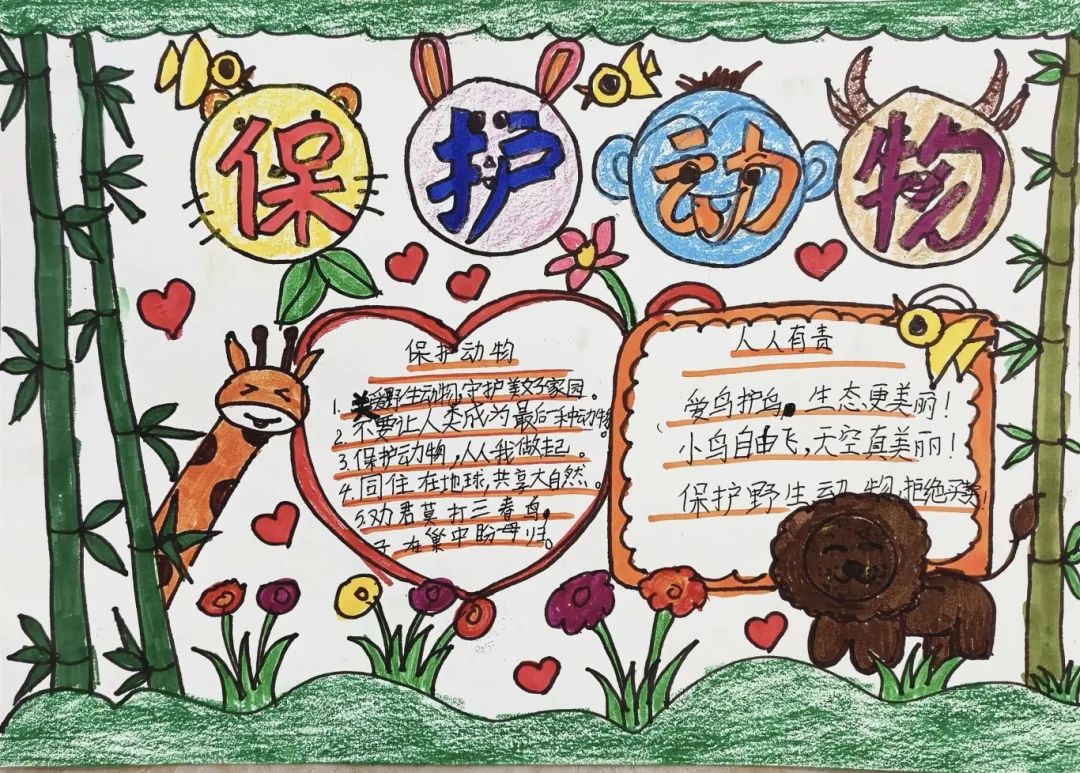 保护动物
保护动物
1.关爱野生动物,守护美好家园。
2.不要让人类成为最后一种动物。
3.保护动物,人人我做起。
4.同住在地球,共享大自然。
5.劝君莫打三春鸟。
子在巢中盼母归。
人人有责
爱鸟护鸟。生态更美丽!
小鸟自由飞,天空真美丽!
保护野生动物,拒绝买卖!